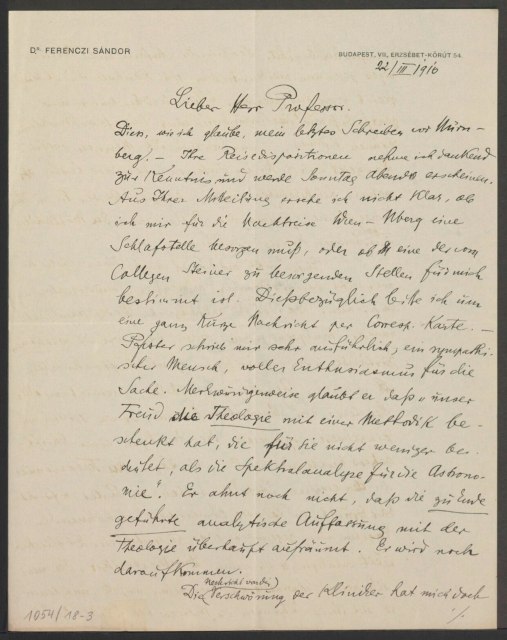 Dr. FERENCZI SÁNDOR
BUDAPEST, VII, ERZSÉBET-KÖRÚT 54.
22/III 1910
Lieber Herr Professor.
Dies, wie ich glaube, mein letztes Schreiben vor Nürn-
berg! – Ihre Reisedispositionen nehme ich dankend
zur Kenntnis und werde Sonntag Abends erscheinen.
Aus Ihrer Mitteilung ersehe ich nicht klar, ob
ich mir für die Nachtreise Wien – Nberg eine
Schlafstelle besorgen muß, oder ob eine der vom
Collegen Steiner zu besorgenden Stellen für mich
bestimmt ist. Dießbezüglich bitte ich um
eine ganz kurze Nachricht per Corresp. Karte. –
Pfister schrieb mir sehr ausführlich; ein sympathi-
scher Mensch, voller Enthusiasmus für die
Sache. Merkwürdigerweise glaubt er daß „unser
Freud die Theologie mit einer Methodik be-
schenkt hat, die für sie nicht weniger be-
deutet, als die Spektralanalyse für die Astrono-
mie". Er ahnt noch nicht, daß die zu Ende
geführte analytische Auffassung mit der
Theologie überhaupt aufräumt. Er wird noch
darauf kommen.
(Nachricht von der)
Die Verschwörung der Kliniker hat mich doch
./.
1054/18-3